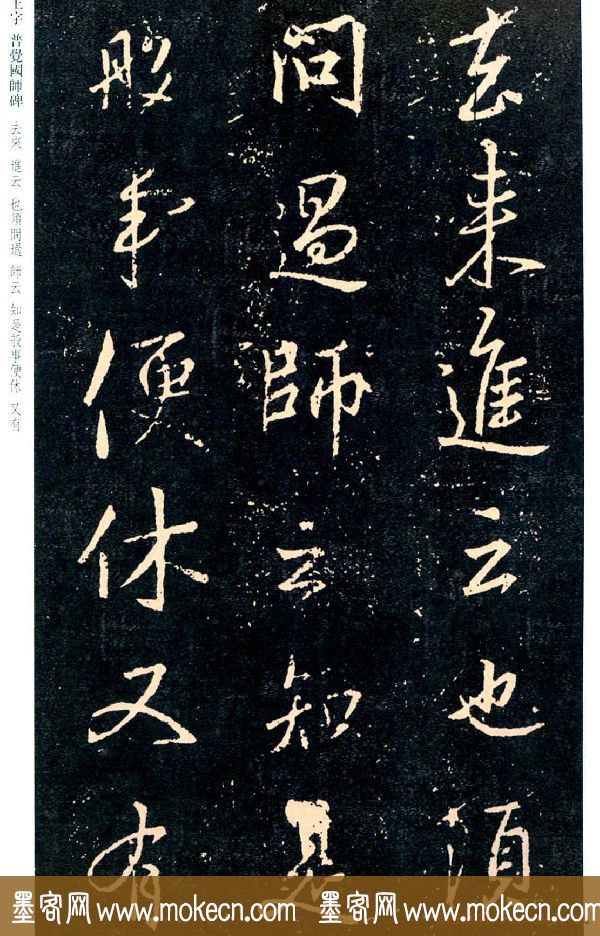 去来進云也須
問過師云知是
般事便休又有
王字 普覺國師碑 去來 進云 也須問過 師云 知是般事便休 又有
墨客网 www.mokecn.com 墨客网 www.mokecn.com